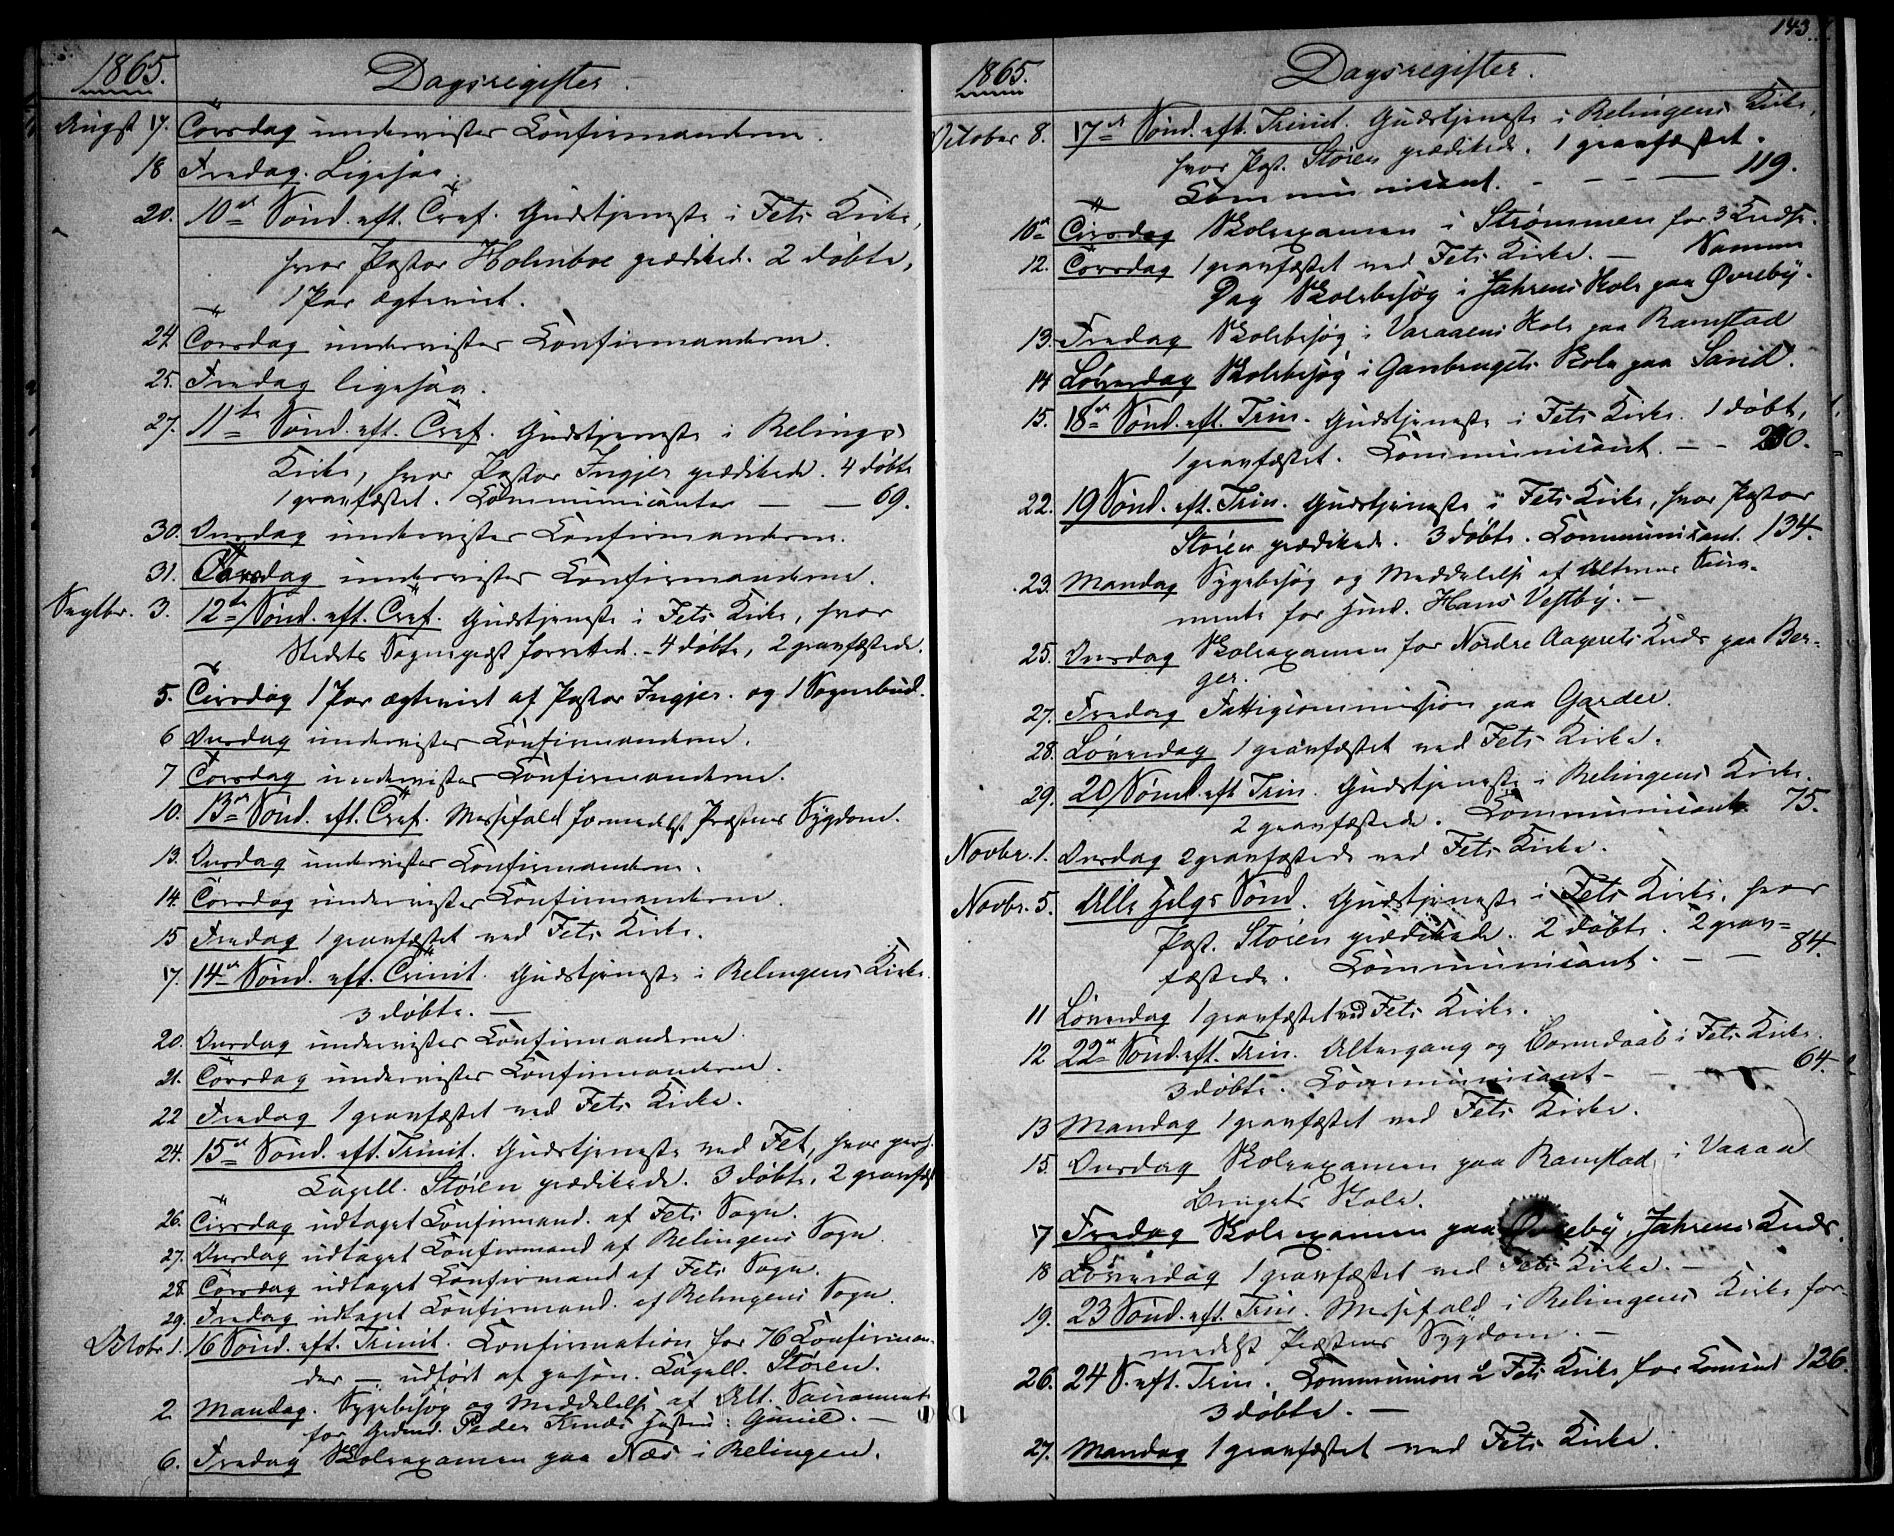 1865.
Dagsregister.
Augst 17. Torsdag underviister Confirmanderne.
18 Fredag. Ligesaa.
20. 10de Sønd. eft. Tref. Gudstjeneste i Fets Kirke,
hvor Pastor Holmboe prædiked. 2 døbte,
1 Par ægteviet.
24. Torsdag underviistes Confirmanderne.
25. Fredag ligesaa.
27. 11te Sønd. eft. Tref. Gudstjeneste i Relings
Kirke, hvor Pastor Ingier prædikede. 4 døbte
1 gravfæstet. Communicanter — — 69.
30. Onsdag underviistes Confirmanderne.
31. Torsdag underviistes Confirmanderne.
Septbr. 3. 12te Sønd. eft. Tref. Gudstjeneste i Fets Kirke, hvor
Stedets Sognepræst forretted. - 4 døbte, 2 gravfæstede.
5. Tirsdag 1 Par ægteviet af Pastor Ingier. og 1 Sognebud.
6 Onsdag underviistes Confirmanderne.
7 Torsdag underviistes Confirmanderne.
10. 13de Sønd. eft. Tref. Messefald formedelst Præstens Sygdom.
13. Onsdag underviistes Confirmanderne.
14. Torsdag underviistes Confirmanderne.
15 Fredag 1 gravfæstet ved Fets Kirke.
17. 14de Sønd. eft. Trinit. Gudstjeneste i Relingens Kirke.
3 døbte. —
20. Onsdag underviistes Confirmanderne.
21. Torsdag underviistes Confirmanderne.
22 Fredag 1 gravfæstet ved Fets Kirke.
24. 15de Sønd. eft. Trinit. Gudstjeneste ved Fet, hvor pers.
Capell. Støren prædikede. 3 døbte, 2 gravfæst
26. Tirsdag udtaget Confirmand. af Fets Sogn.
27. Onsdag udtaget Confirmand af Relingens Sogn.
28. Torsdag udtaget Confirmand af Fets Sogn.
29. Fredag udtaget Confirmand. af Relingens Sogn.
Octobr 1. 16 Sønd. eft. Trinit. Confirmation for 76 Confirman-
der — udført af person. Capell. Støren.
2 Mandag. Sygebesøg og Meddelelse af Alt. Sacrament
for Peder
6. Fredag Skoleexamen paa Næs i Relingen.
143
1865.
Dagsregister.
October 8. 17de Sønd. eft. Trinit. Gudstjeneste i Relingens Kirke,
hvor Past. Støren prædikede. 1 gravfæstet.
Communicant. - - - — 119.
10de Tirsdag Skoleexamen i Strømmen for 3 Kredse.
12. Torsdag 1 gravfæstet ved Fets Kirke. — Samme
Dag Skolebesøg i Jahrens Skole paa Øvreby.
13. Fredag Skolebesøg i Varaaens Skole paa Ramstad
14 Løverdag Skolebesøg i Skole paa Sand.
15. 18de Sønd. eft. Trin. Gudstjeneste i Fets Kirke. 1 døbt,
1 gravfæstet. Communicant. —
22. 19 Sønd. eft. Trin. Gudstjeneste i Fets Kirke, hvor Pastor
Støren prædikede. 3 døbte. Communicant. 134.
23. Mandag Sygebesøg og Meddelelse af Alterens Sacra-
mente for Hans Vestby. —
25. Onsdag Skoleexamen for Nordre Aagerets Kreds paa Ber-
ger.
27. Fredag Fattigcommission paa Garder.
28. Løverdag 1 gravfæstet ved Fets Kirke.
29. 20 Sønd. eft Trin. Gudstjeneste i Relingens Kirke.
2 gravfæstede. Communicant 75.
Novbr. 1. Onsdag 2 gravfæstede ved Fets Kirke.
Novbr. 5. Alle Helgs Sønd. Gudstjeneste i Fets Kirke, hvor
Past. Støren prædikede. 2 døbte. 2 grav-
fæstede. Communicant. — — 84.
11 Løverdag 1 gravfæstet ved Fets Kirke.
12. 22de Sønd. eft. Trin. Altergang og Barnedaab i Fets Kirke.
3 døbte. Communicant - - — 64.
13 Mandag 1 gravfæstet ved Fets Kirke.
15. Onsdag Skoleexamen paa Ramstad i Varaa
Skole.
17 Fredag Skoleexamen paa Øvreby, Jahrens Kreds.
18 Løverdag 1 gravfæstet ved Fets Kirke. —
19. 23 Sønd. eft. Trin. Messefald i Relingens Kirke for-
medelst Præstens Sygdom. —
26. 24 S. eft. Trin. Communion i Fets Kirke for Comund 126.
3 døbte. —
27. Mandag 1 gravfæstet ved Fets Kirke.